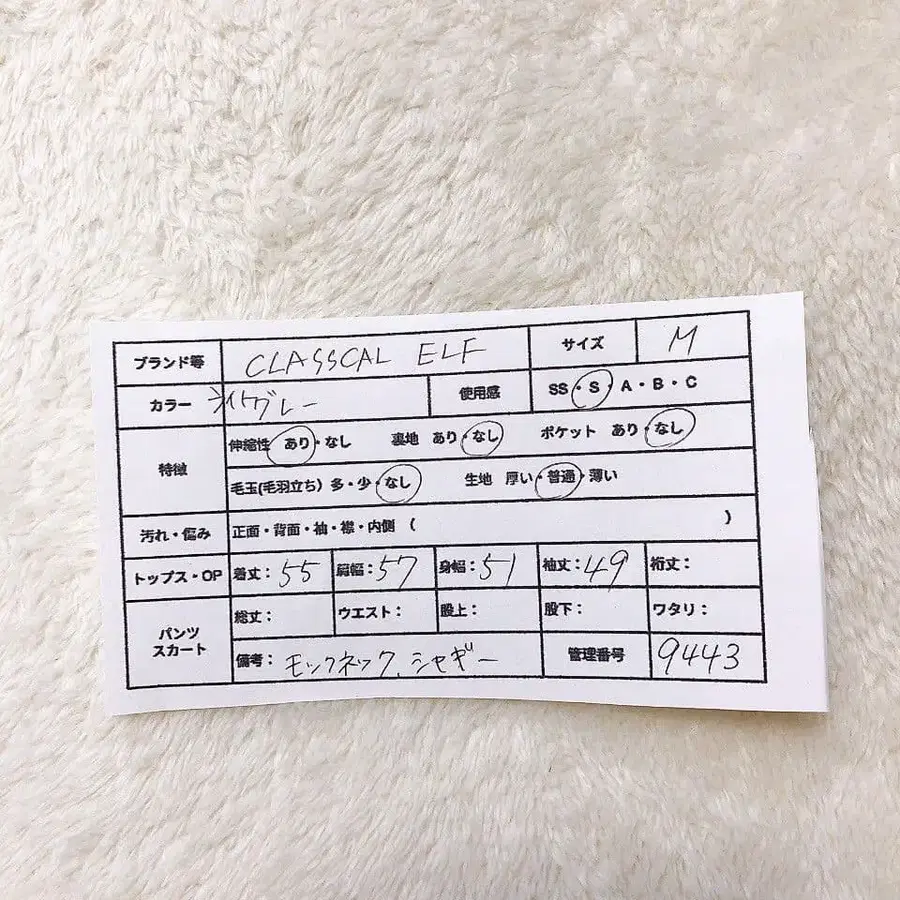 ブランド等 CLASSCAL ELF サイズ M
カラー ライトグレー 使用感 SS・S・A・B・C
特徴 伸縮性 あり・なし 裏地 あり・なし ポケット あり・なし
毛玉(毛羽立ち) 多・少・なし 生地 厚い・普通・薄い
汚れ・傷み 正面・背面・袖・襟・内側 ( )
トップス・OP 着丈：55 肩幅：57 身幅：51 袖丈：49 裄丈：
パンツ スカート 総丈： ウエスト： 股上： 股下： ワタリ：
備考： モックネック、シャギー 管理番号 9443